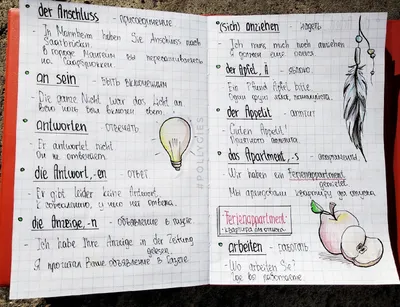 der Anschluss - присоединение
- In Mannheim haben Sie Anschluss nach
Saarbrücken.
В городе Маннгейм Вы пересаживаетесь
на Саарбрюккен.
an sein - быть включенным
- Die ganze Nacht war das Licht an
Всю ночь был включен свет.
antworten - отвечать
- Er antwortet nicht
Он не отвечает.
die Antwort, -en - ответ
- Er gibt leider keine Antwort.
К сожалению, у него нет ответа.
die Anzeige, -n - объявление в газете
- Ich habe Ihre Anzeige in der Zeitung
gelesen.
Я прочитал Ваше объявление в газете.
#POLLYGIES
(sich) anziehen - надеть
- Ich muss mich noch anziehen
Я должен еще
der Apfel, Ä - яблоко
- Ein Pfund Äpfel bitte
Один фунт яблок, пожалуйста.
der Appetit - аппетит
- Guten Appetit!
Приятного аппетита
das Apartment, -s - апартаменты
- Wir haben ein Ferienappartment
gemietet
Мы арендовали квартиру для отпуска
Ferienappartment -
квартира для отпуска
arbeiten - работать
- Wo arbeiten Sie?
Где Вы работаете